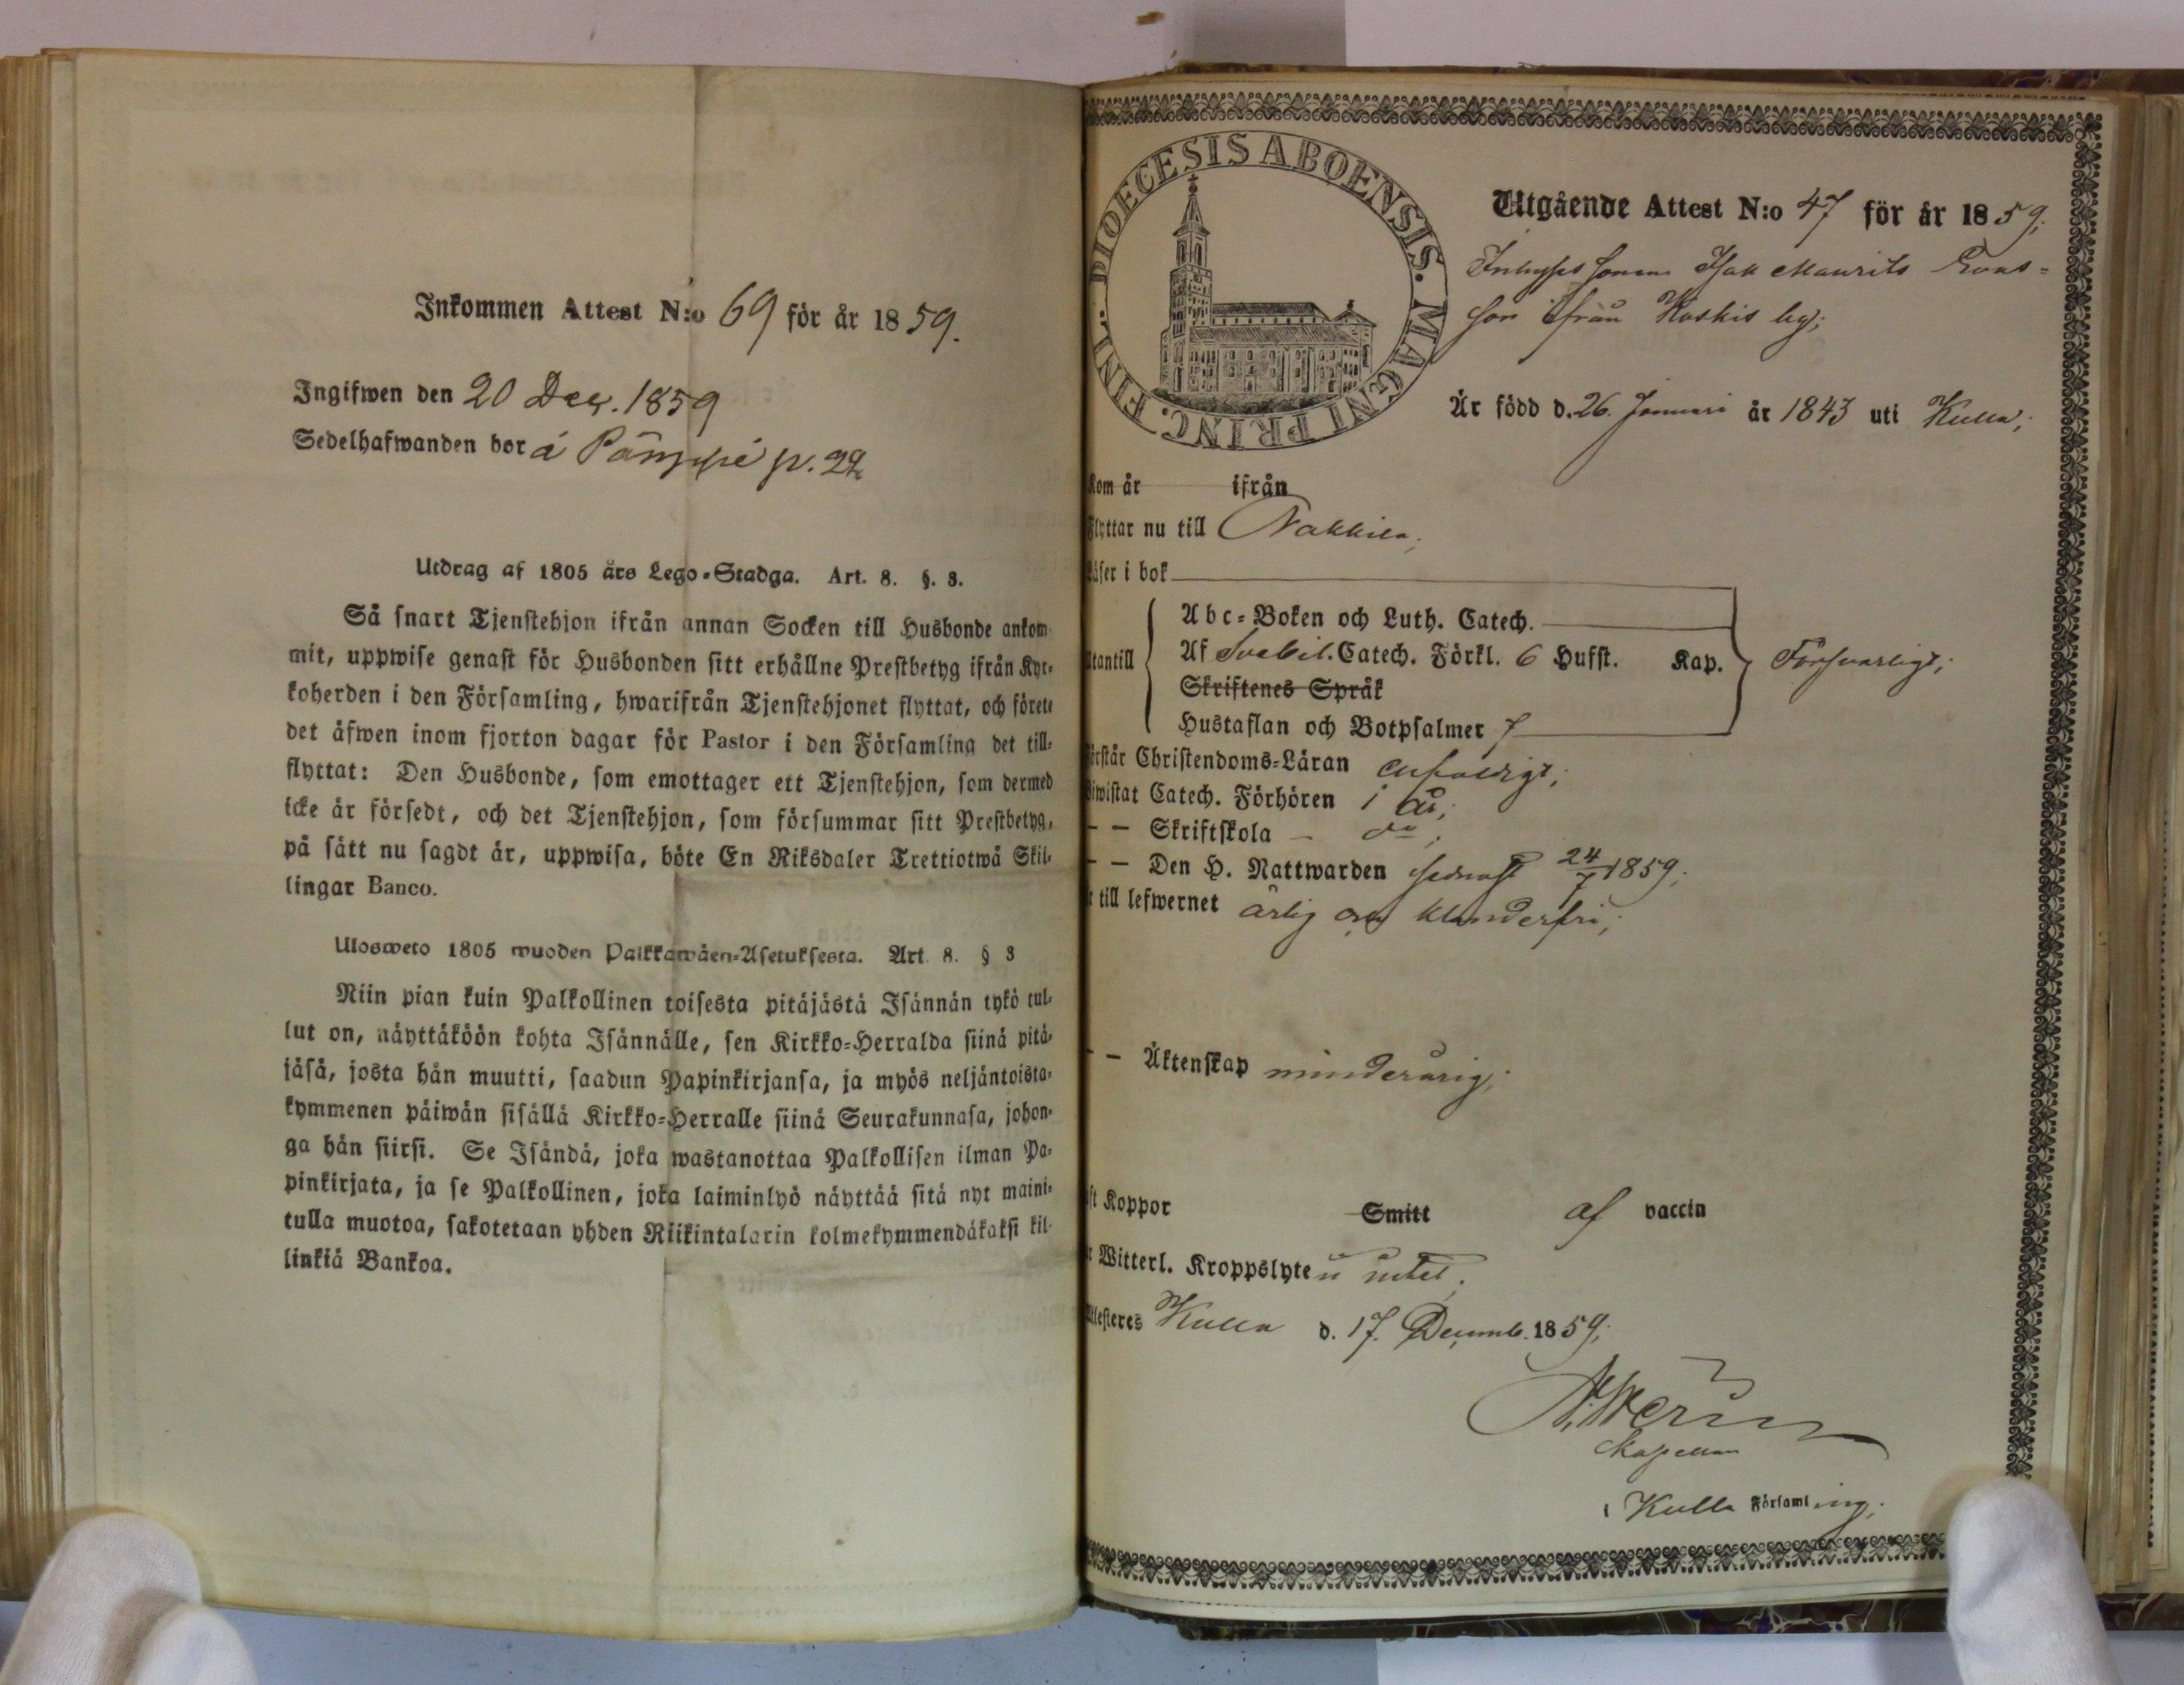 Inkommen Attest N:o 69 för år 1859.
Ingifwen den 20 Dec. 1859
Sedelhafwanden bor å p. 22
Utdrag af 1805 års Lego-Stadga. Art. 8. §. 3.
Så snart Tjenstehjon ifrån annan Socken till Husbonde ankom-
mit, uppwise genast för Husbonden sitt erhållne Prestbetyg ifrån Kyr-
koherden i den Församling, hwarifrån Tjenstehjonet flyttat, och förete
det äfwen inom fjorton dagar för Pastor i den Församling det till-
flyttat: Den Husbonde, som emottager ett Tjenstehjon, som dermed
icke är försedt, och det Tjenstehjon, som försummar sitt Prestbetyg,
på sätt nu sagdt är, uppwisa, böte En Riksdaler Trettiotwå Skil-
lingar Banco.
Ulosweto 1805 wuoden Palkkawäen-Asetuksesta. Art. 8. § 3
Niin pian kuin Palkollinen toisesta pitäjästä Isännän tykö tul-
lut on, näyttäköön kohta Isännälle, sen Kirkko-Herralda siinä pitä-
jäsä, josta hän muutti, saadun Papinkirjansa, ja myös neljäntoista-
kymmenen päiwän sisällä Kirkko-Herralle siinä Seurakunnasa, johon-
ga hän siirsi. Se Isändä, joka wastanottaa Palkollisen ilman Pa-
pinkirjata, ja se Palkollinen, joka laiminlyö näyttää sitä nyt maini-
tulla muotoa, sakotetaan yhden Riikintalarin kolmekymmendäkaksi kil-
linkiä Bankoa.
DIOECESIS ABOENSIS. MAGNI PRINC. FINL.
Utgående Attest N:o 47 för år 1859;
Inhyses sonen Isak Maurits Evas-
son ifrån Koskis by;
Är född d. 26. Januari år 1843 uti Kulla;
Kom år ifrån
Flyttar nu till Nakkila;
Läser i bok
Abc-Boken och Luth. Catech.
Utantill Af Svebil. Catech. Förkl. 6 Hufst. Kap. Försvarligt;
Skriftenes Språk
Hustaflan och Botpsalmer 7
Förstår Christendoms-Läran enfaldigt;
Biwistat Catech. Förhören i år;
— — Skriftskola — do;
— — Den H. Nattwarden sednast 24/7 1859;
till lefwernet ärlig och klanderfri;
— — Äktenskap minderårig;
Koppor Smitt af vaccin
Witterl. Kroppslyte utan;
Attesteres Kulla d. 17. Decemb. 1859;
Kapellan
i Kulla Församling;